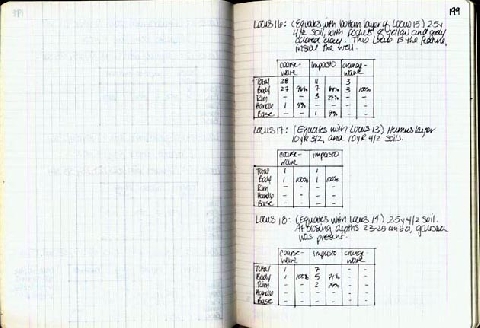 199
Locus 16: (Equates with bottom layer of Locus 15) 2.5Y
4/2 soil, with pockets of yellow and gray
colored clay. This locus is the feature,
inside the well.
coarse-ware imports orange-ware
Total 28 11 3
Body 27 96% 7 3 100%
Rim - - 3 27% - -
Handle 1 - - - -
Base - - 1 9% - -
Locus 17: (Equates with Locus 13) Humus layer
10YR 3/2, and 10YR 4/2 soil.
coarse-ware imports
Total 1 1
Body 1 100% 1 100%
Rim - - - -
Handle - - - -
Base - - - -
Locus 18: (Equates with Locus 14) 2.5Y 4/2 soil.
At closing depths 23-25 cm
was present.
coarse-ware imports orange-ware
Total 1 7 - -
Body 1 100% 5 71% - -
Rim - - 2 - -
Handle - - - - - -
Base - - - - - -